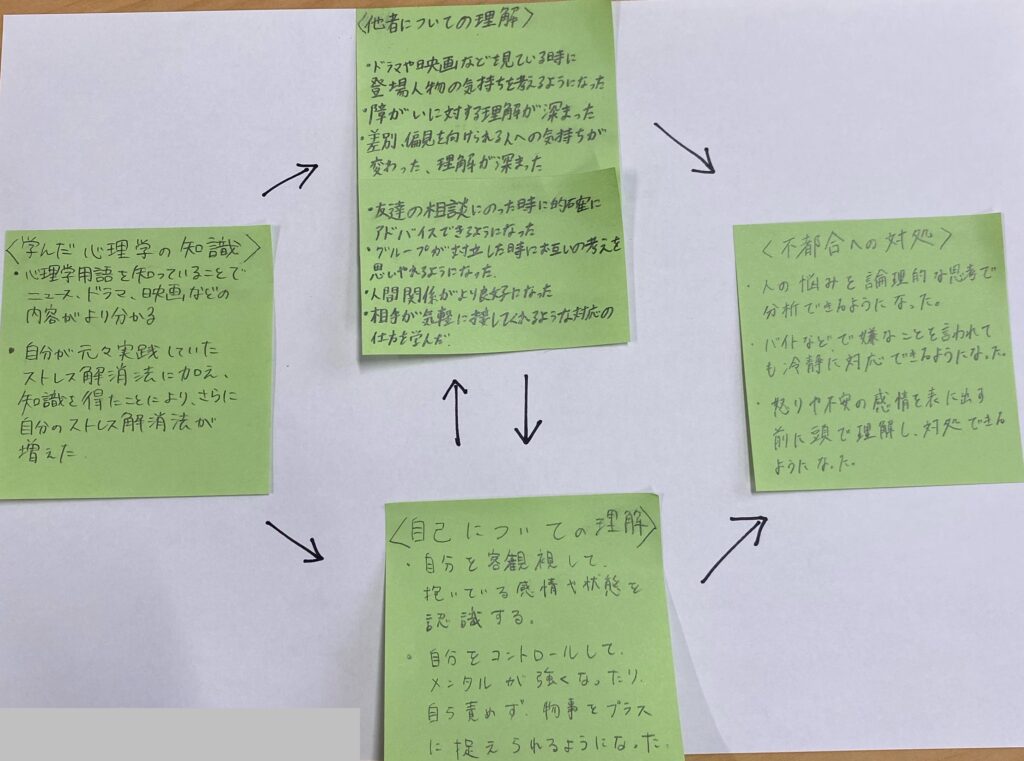 〈他者についての理解〉
・ドラマや映画などを見ている時に
登場人物の気持ちを考えるようになった
・障がいに対する理解が深まった
・差別、偏見を向けられる人への気持ちが
変わった、理解が深まった
・友達の相談にのった時に的確に
アドバイスできるようになった
・グループが対立した時にお互いの考えを
思いやれるようになった.
・人間関係がより良好になった
・相手が気軽に接してくれるような対応の
仕方を学んだ.
〈学んだ心理学の知識〉
・心理学用語を知っていることで
ニュース、ドラマ、映画などの
内容がより分かる
・自分が元々実践していた
ストレス解消法に加え、
知識を得たことにより、さらに
自分のストレス解消法が
増えた.
〈不都合への対処〉
・人の悩みを論理的な思考で
分析できるようになった。
・バイトなどで嫌なことを言われて
も冷静に対応できるようになった.
・怒りや不安の感情を表に出す
前に頭で理解し、対処できる
ようになった。
〈自己についての理解〉
・自分を客観視して、
抱いている感情や状態を
認識する。
・自分をコントロールして、
メンタルが強くなったり、
自ら責めず、物事をプラス
に捉えられるようになった.